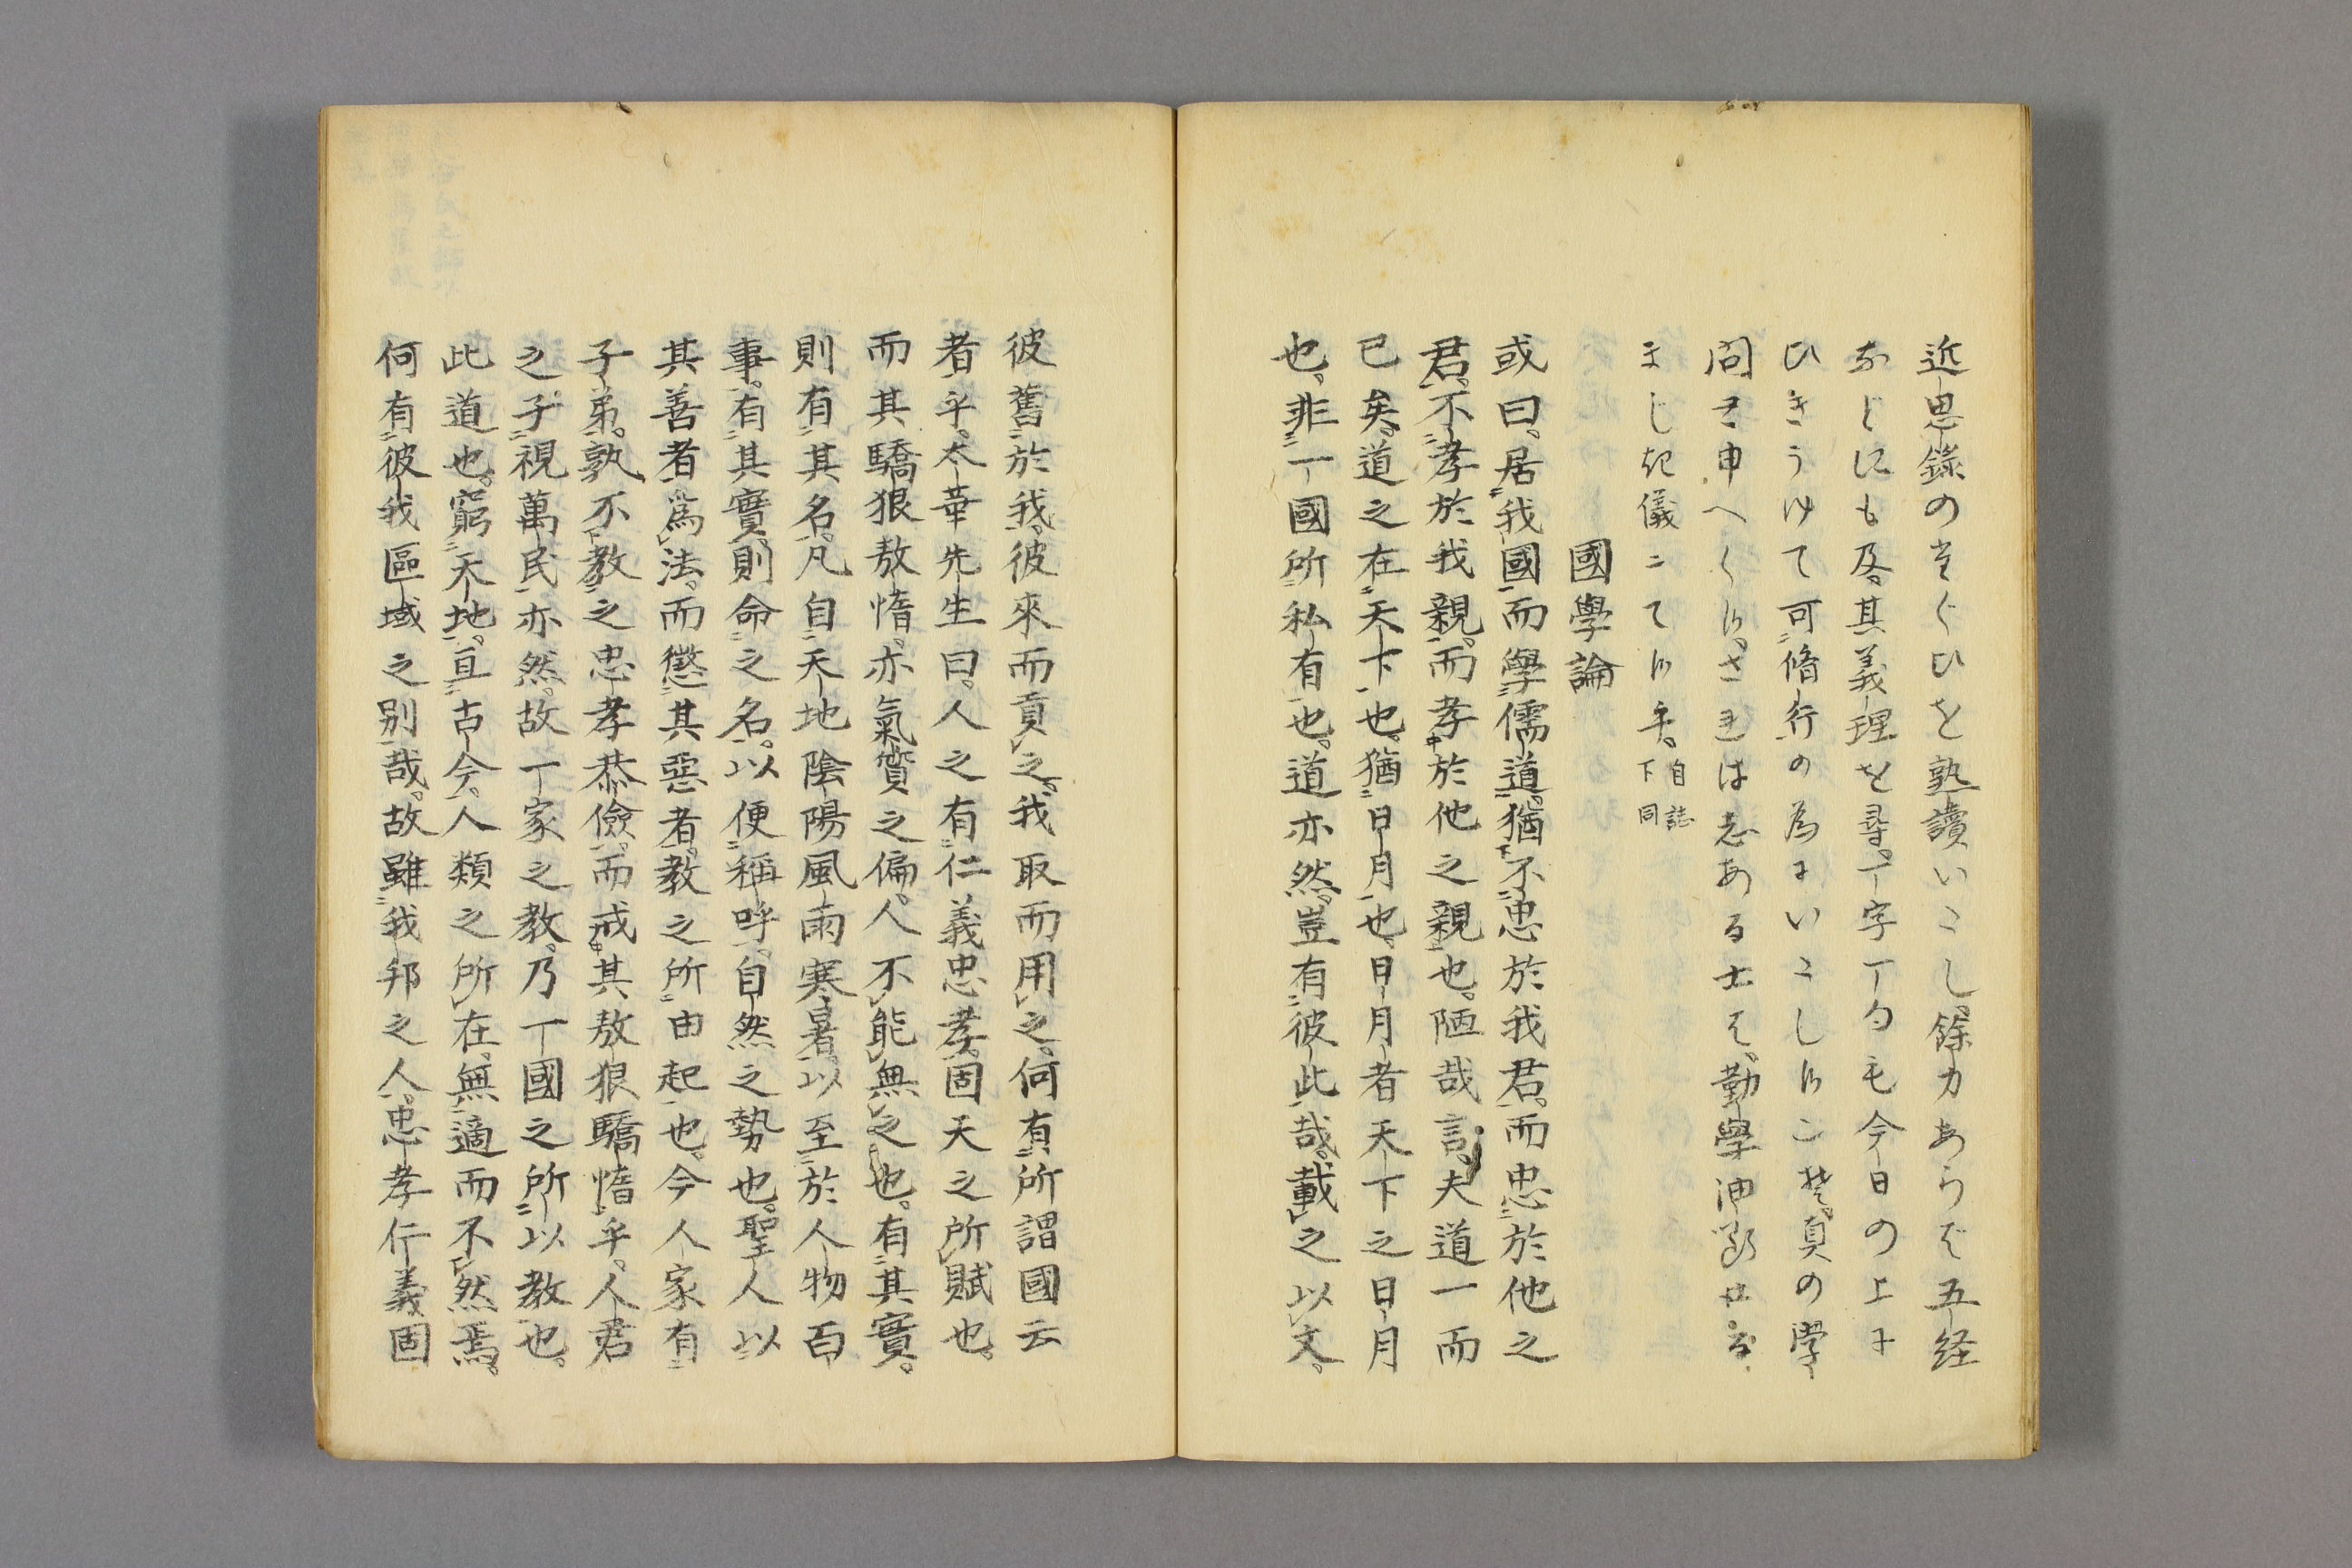 近思錄のるぐひを熟讀いたし。餘力あらば五経
などにも及。其義理を尋。一字一句も今日の上に
ひきうけて可脩行の為にいたし候こそ。真の学
問と申へく候。されは志ある士は。勤學油断せる
ましき儀ニて候事。自誌
下同
國學論
或曰。居我國而學儒道。猶不忠於我君。而忠於他之
君。不孝於我親。而孝於他之親也。陋哉言。夫道一而
已矣。道之在天下也。猶日月也。日月者天下之日月
也。非一國所私有也。道亦然。豈有彼此哉。載之以文。
彼舊於我。彼來而貢之。我取而用之。何有所謂國云
者乎。太華先生曰。人之有仁義忠孝。固天之所賦也。
而其驕狠敖惰。亦氣質之偏。人不能無之也。有其實。
則有其名。凡自天地陰陽風雨寒暑。以至於人物百
事。有其實。則命之名。以便稱呼。自然之勢也。聖人以
其善者爲法。而懲其惡者。教之所由起也。今人家有
子弟。孰不教之忠孝恭儉。而戒其敖狠驕惰乎。人君
之子視萬民亦然。故一家之教。乃一國之所以教也。
此道也。窮天地。亘古今。人類之所在。無適而不然焉。
何有彼我區域之别哉。故雖我邦之人。忠孝仁義固